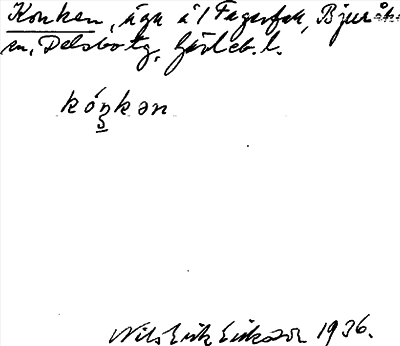 Konken, äga å l Fagerfak, Bjuråk-
er, Delsbo tg, Gävleb. l.
kóŋkən
Nils Erik Erikson 1936.